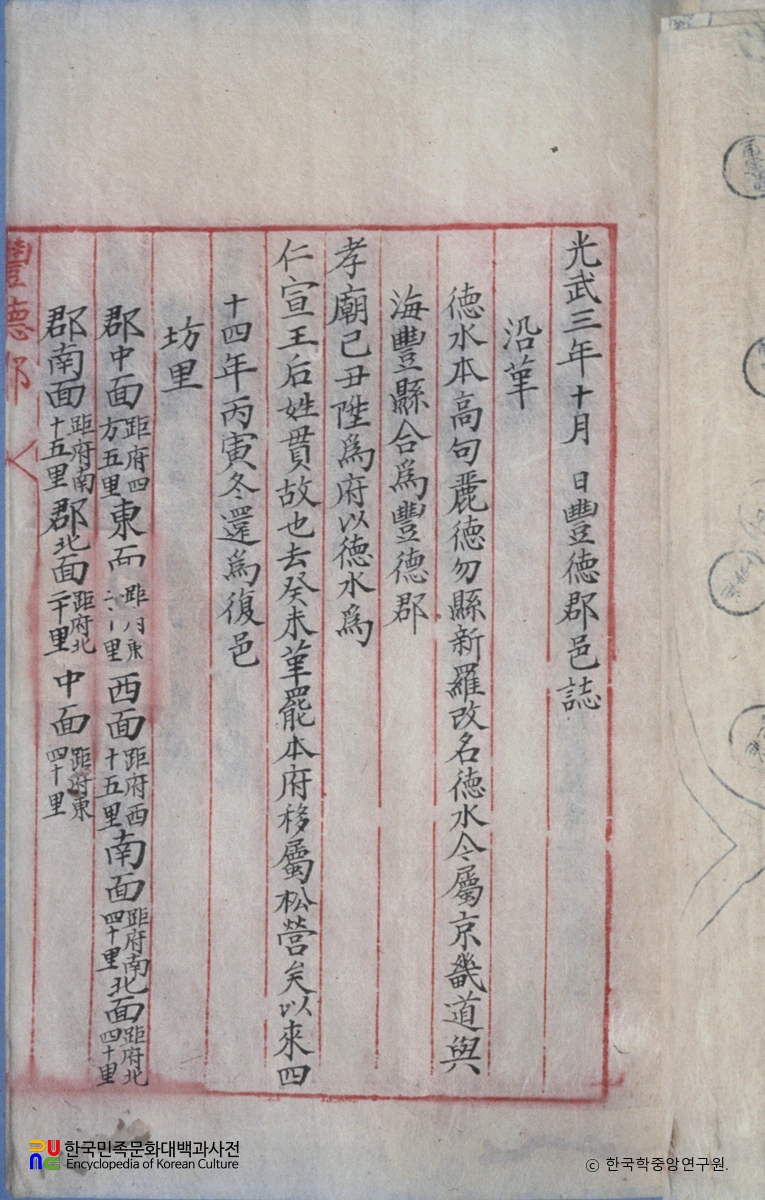 光武三年十月 日豐德郡邑誌
沿革
德水本高句麗德勿縣新羅改名德水今屬京畿道與
海豐縣合爲豐德郡
孝廟己丑陞爲府以德水爲
仁宣王后姓貫故也去癸未革罷本府移屬松營矣以來四
十四年丙寅冬還爲復邑
坊里
郡中面 距府四方五里 東面 距府東里 西面 距府西十五里 南面 距府南四十里 北面 距府北四十里
郡南面 距府南十五里 郡北面 距府北二十里 中面 距府東四十里
豐德郡
한국민족문화대백과사전
Encyclopedia of Korean Culture
© 한국학중앙연구원.